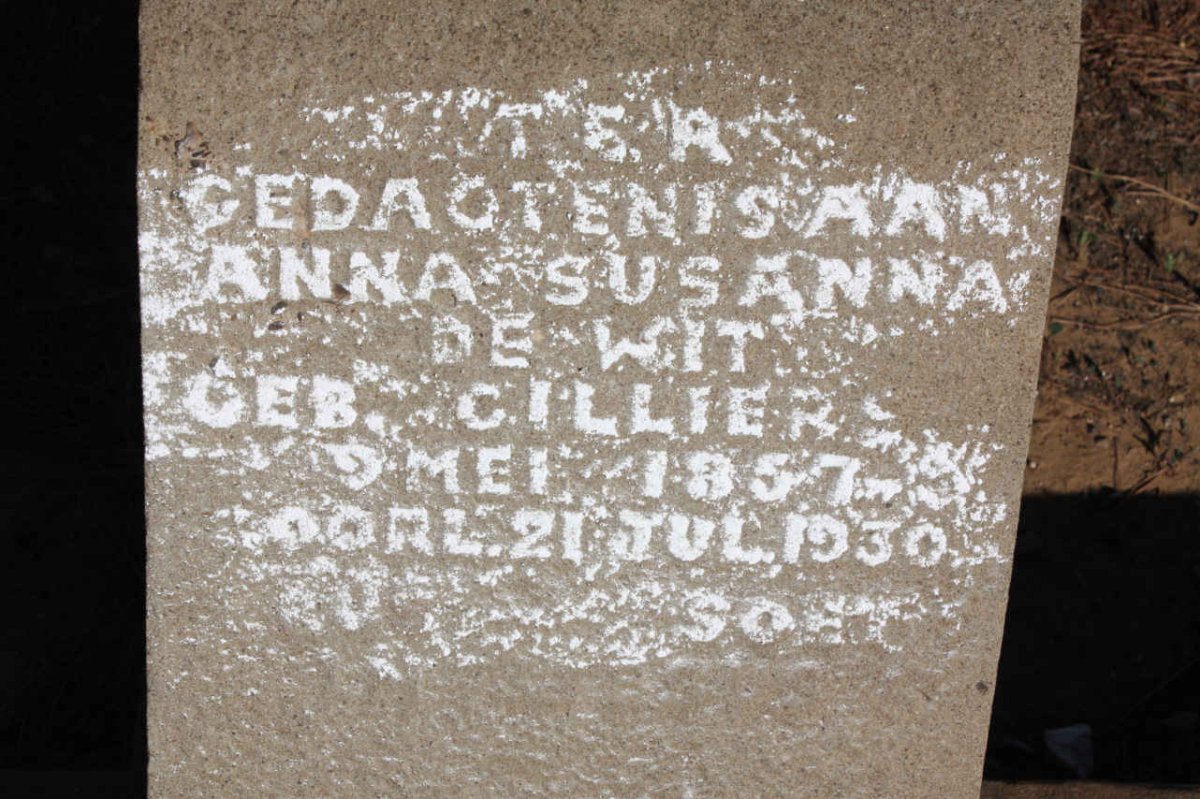 TER
GEDAGTENIS AAN
ANNA SUSANNA
DE WIT
GEB. CILLIERS
9 MEI 1857
OORL. 21 JUL. 1930
RU SOET